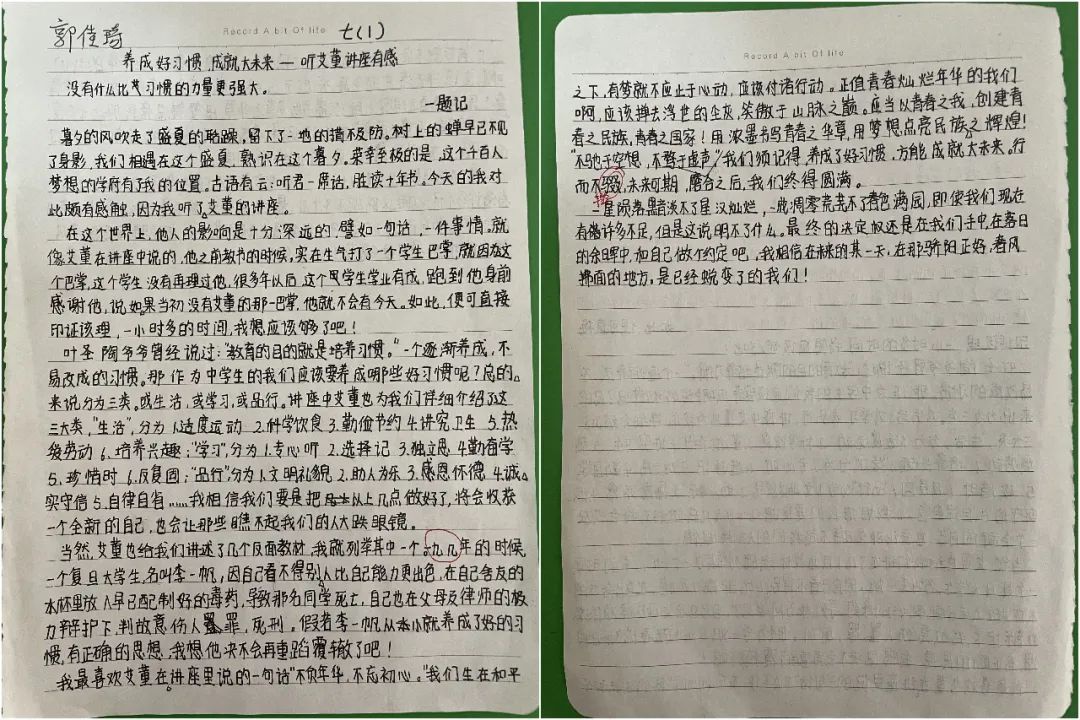 郭佳琦
Record A bit Of life
七(1)
养成好习惯,成就大未来 — 听艾董讲座有感
没有什么比习惯的力量更强大。
—题记
暮夕的风吹走了盛夏的聒躁,留下了一地的猝不及防。树上的蝉早已不见
了身影,我们相遇在这个盛夏,熟识在这个暮夕。荣幸至极的是,这个千百人
梦想的学府有了我的位置。古语有云:听君一席话,胜读十年书。今天的我对
此颇有感触,因为我听了艾董的讲座。
在这个世界上,他人的影响是十分深远的,譬如一句话,一件事情。就
像艾董在讲座中说的,他之前教书的时候,实在生气打了一个学生巴掌,就因为这
个巴掌,这个学生没有再理过他,很多年以后,这个学生学业有成,跑到他身前
感谢他,说如果当初没有艾董的那一巴掌,他就不会有今天。如此,便可直接
印证该理,一小时多的时间,我想应该够了吧!
叶圣陶爷爷曾经说过:"教育的目的就是培养习惯。"一个逐渐养成,不
易改成的习惯。那作为中学生的我们应该要养成哪些好习惯呢?总的
来说分为三类。或生活,或学习,或品行。讲座中艾董也为我们详细介绍了这
三大类,"生活",分为1.适度运动 2.科学饮食 3.勤俭节约 4.讲究卫生 5.热
爱劳动 6.培养兴趣;"学习",分为1.专心听 2.选择记 3.独立思 4.勤奋学
5.珍惜时 6.反复固;"品行",分为1.文明礼貌 2.助人为乐 3.感恩怀德 4.诚
实守信 5.自律自省……我相信我们要是把以上几点做好了,将会收获
一个全新的自己,也会让那些瞧不起我们的人大跌眼镜。
当然,艾董也给我们讲述了几个反面教材,我就列举其中一个,九几年的时候,
一个复旦大学生,名叫李一帆,因自己看不得别人比自己能力更出色,在自己舍友的
水杯里放入早已配制好的毒药,导致那名同学死亡,自己也在父母及律师的极
力辩护下,判故意伤人罪,死刑。假若李一帆从小就养成了好的习
惯,有正确的思想,我想他决不会再重蹈覆辙了吧!
我最喜欢艾董在讲座里说的一句话"不负年华,不忘初心。"我们生在和平
Record A bit Of life
之下,有梦就不应止于心动,应该付诸行动。正值青春灿烂年华的我们
啊,应该掸去浮世的尘灰,笑傲于山脉之巅。应当以青春之我,创建青
春之民族,青春之国家!用浓墨书写青春之华章,用梦想点亮民族之辉煌!
"不驰于空想,不骛于虚声",我们须记得,养成了好习惯,方能成就大未来。行
而不辍,未来可期,磨合之后,我们终得圆满。
一星陨落,黯淡不了星汉灿烂,一花凋零荒芜不了春色满园,即使我们现在
有诸许多不足,但是这说明不了什么。最终的决定权还是在我们手中,在落日
的余晖中,和自己做个约定吧,我相信在未来的某一天,在那骄阳正好,春风
拂面的地方,是已经蜕变了的我们!